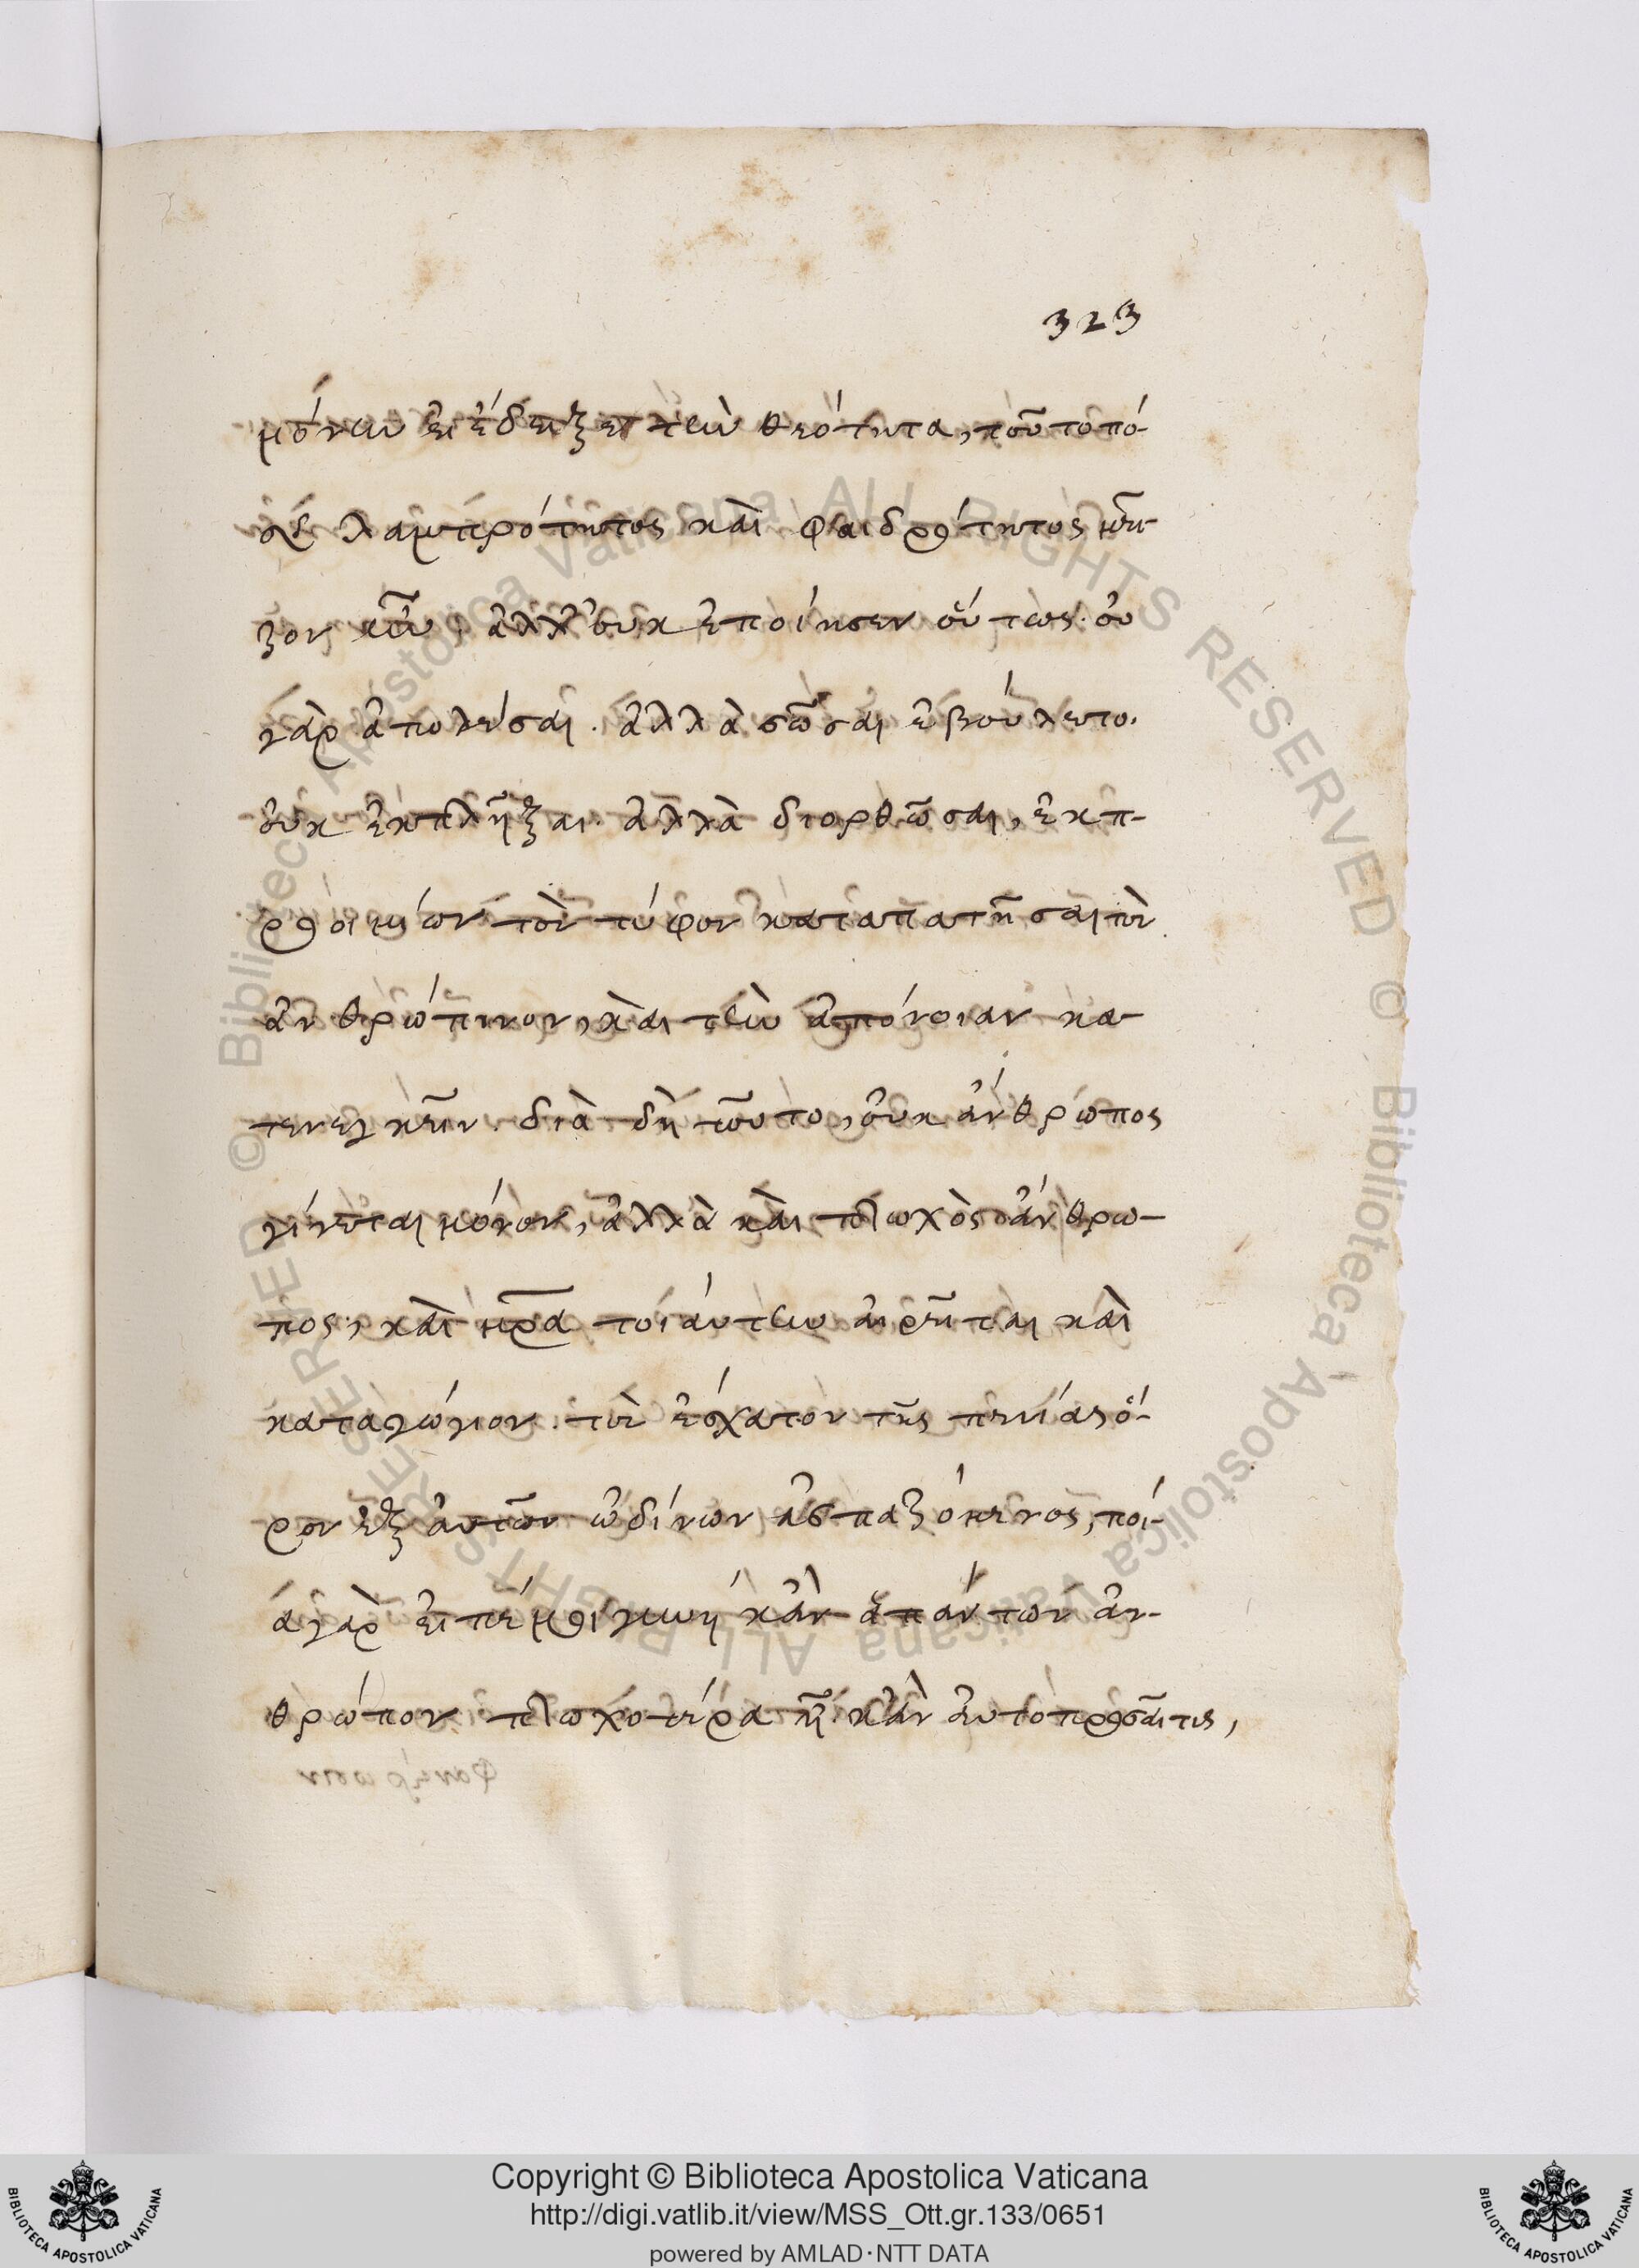 323
μόνην εἰ ἔδειξε τὴν θεότητα, τοῦτο πό-
σης λαμπρότητος καὶ φαιδρότητος μεῖ-
ζον ἦν, ἀλλ' οὐκ ἐποίησεν οὕτως· οὐ
γὰρ ἀπολέσαι· ἀλλὰ σῶσαι ἐβούλετο.
οὐκ ἐκπλῆξαι· ἀλλὰ διορθῶσαι, ἐκ π-
ροοιμίων τὸν τύφον καταπατῆσαι τὸν
ἀνθρώπινον, καὶ τὴν ἀπόνοιαν κα-
τενεγκεῖν. διὰ δὴ τοῦτο, οὐκ ἄνθρωπος
γίνεται μόνον, ἀλλὰ καὶ πτωχὸς ἄνθρω-
πος, καὶ μρ̅α τοιάυτην αἱρεῖται καὶ
καταγώγιον. τὸν ἔσχατον τῆς πενίας ὅ-
ρον ἐξ αὐτῶν ὠδίνων ἀσπαζόμενος, ποί-
α γὰρ εἰπέ μοι γυνὴ κἂν ἁπάντων ἀν-
θρώπον πτωχοτέρα ἦ κἂν αὐτοπροσαῖτις,
Copyright © Biblioteca Apostolica Vaticana
http://digi.vatlib.it/view/MSS_Ott.gr.133/0651
powered by AMLAD·NTT DATA
BIBLIOTECA APOSTOLICA VATICANA
BIBLIOTECA APOSTOLICA VATICANA
© Biblioteca Apostolica Vaticana ALL RIGHTS RESERVED © Biblioteca Apostolica Vaticana ALL RIGHTS RESERVED